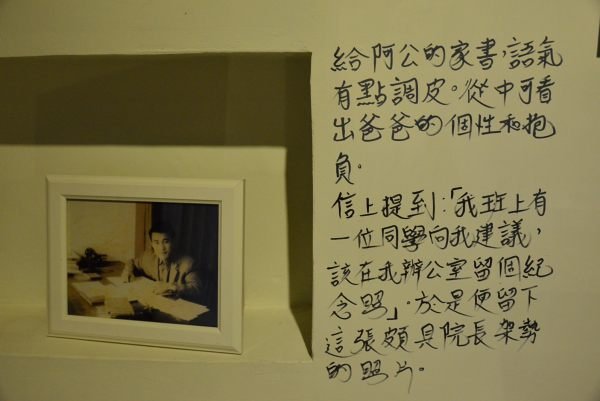 給阿公的家書,語氣
有點調皮。從中可看
出爸爸的個性和抱
負.
信上提到:「我班上有
一位同學向我建議,
該在我辦公室留個紀
念照」.於是便留下
這張頗具院長架勢
的照片。